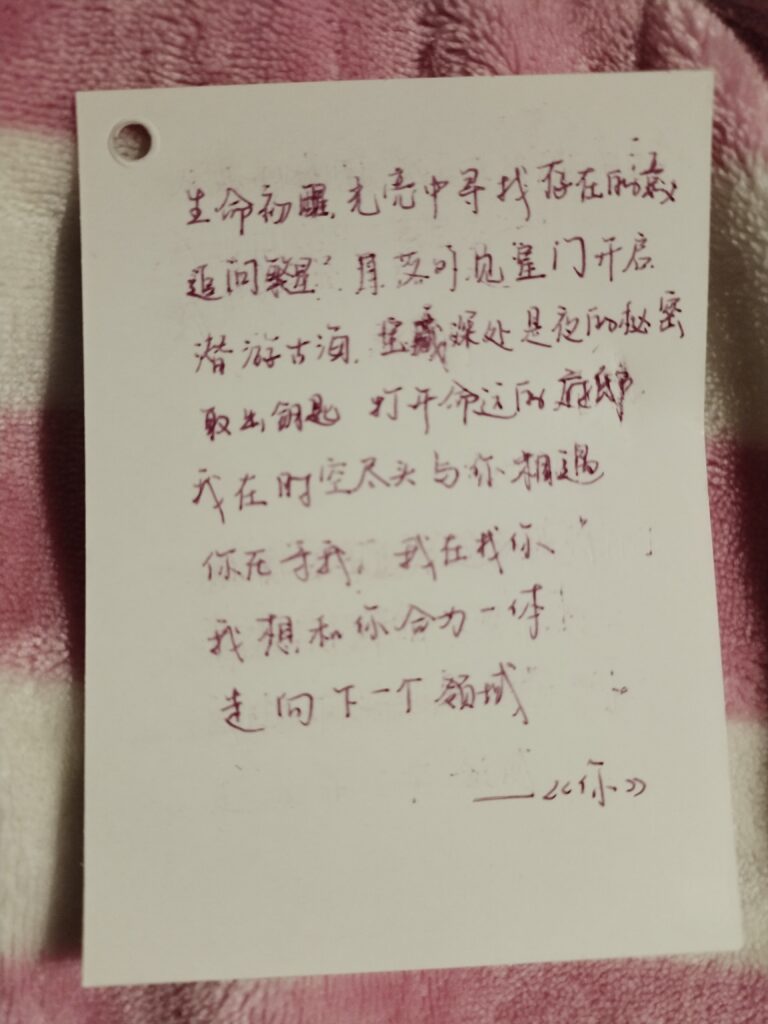 生命初醒,光亮中寻找存在的意义
追问繁星,月落时见星门开启
潜游古海,宝藏深处是夜的秘密
取出钥匙 打开命运的
我在时空尽头与你相遇
你在寻我,我在找你
我想和你合为一体
走向下一个领域
——《你》